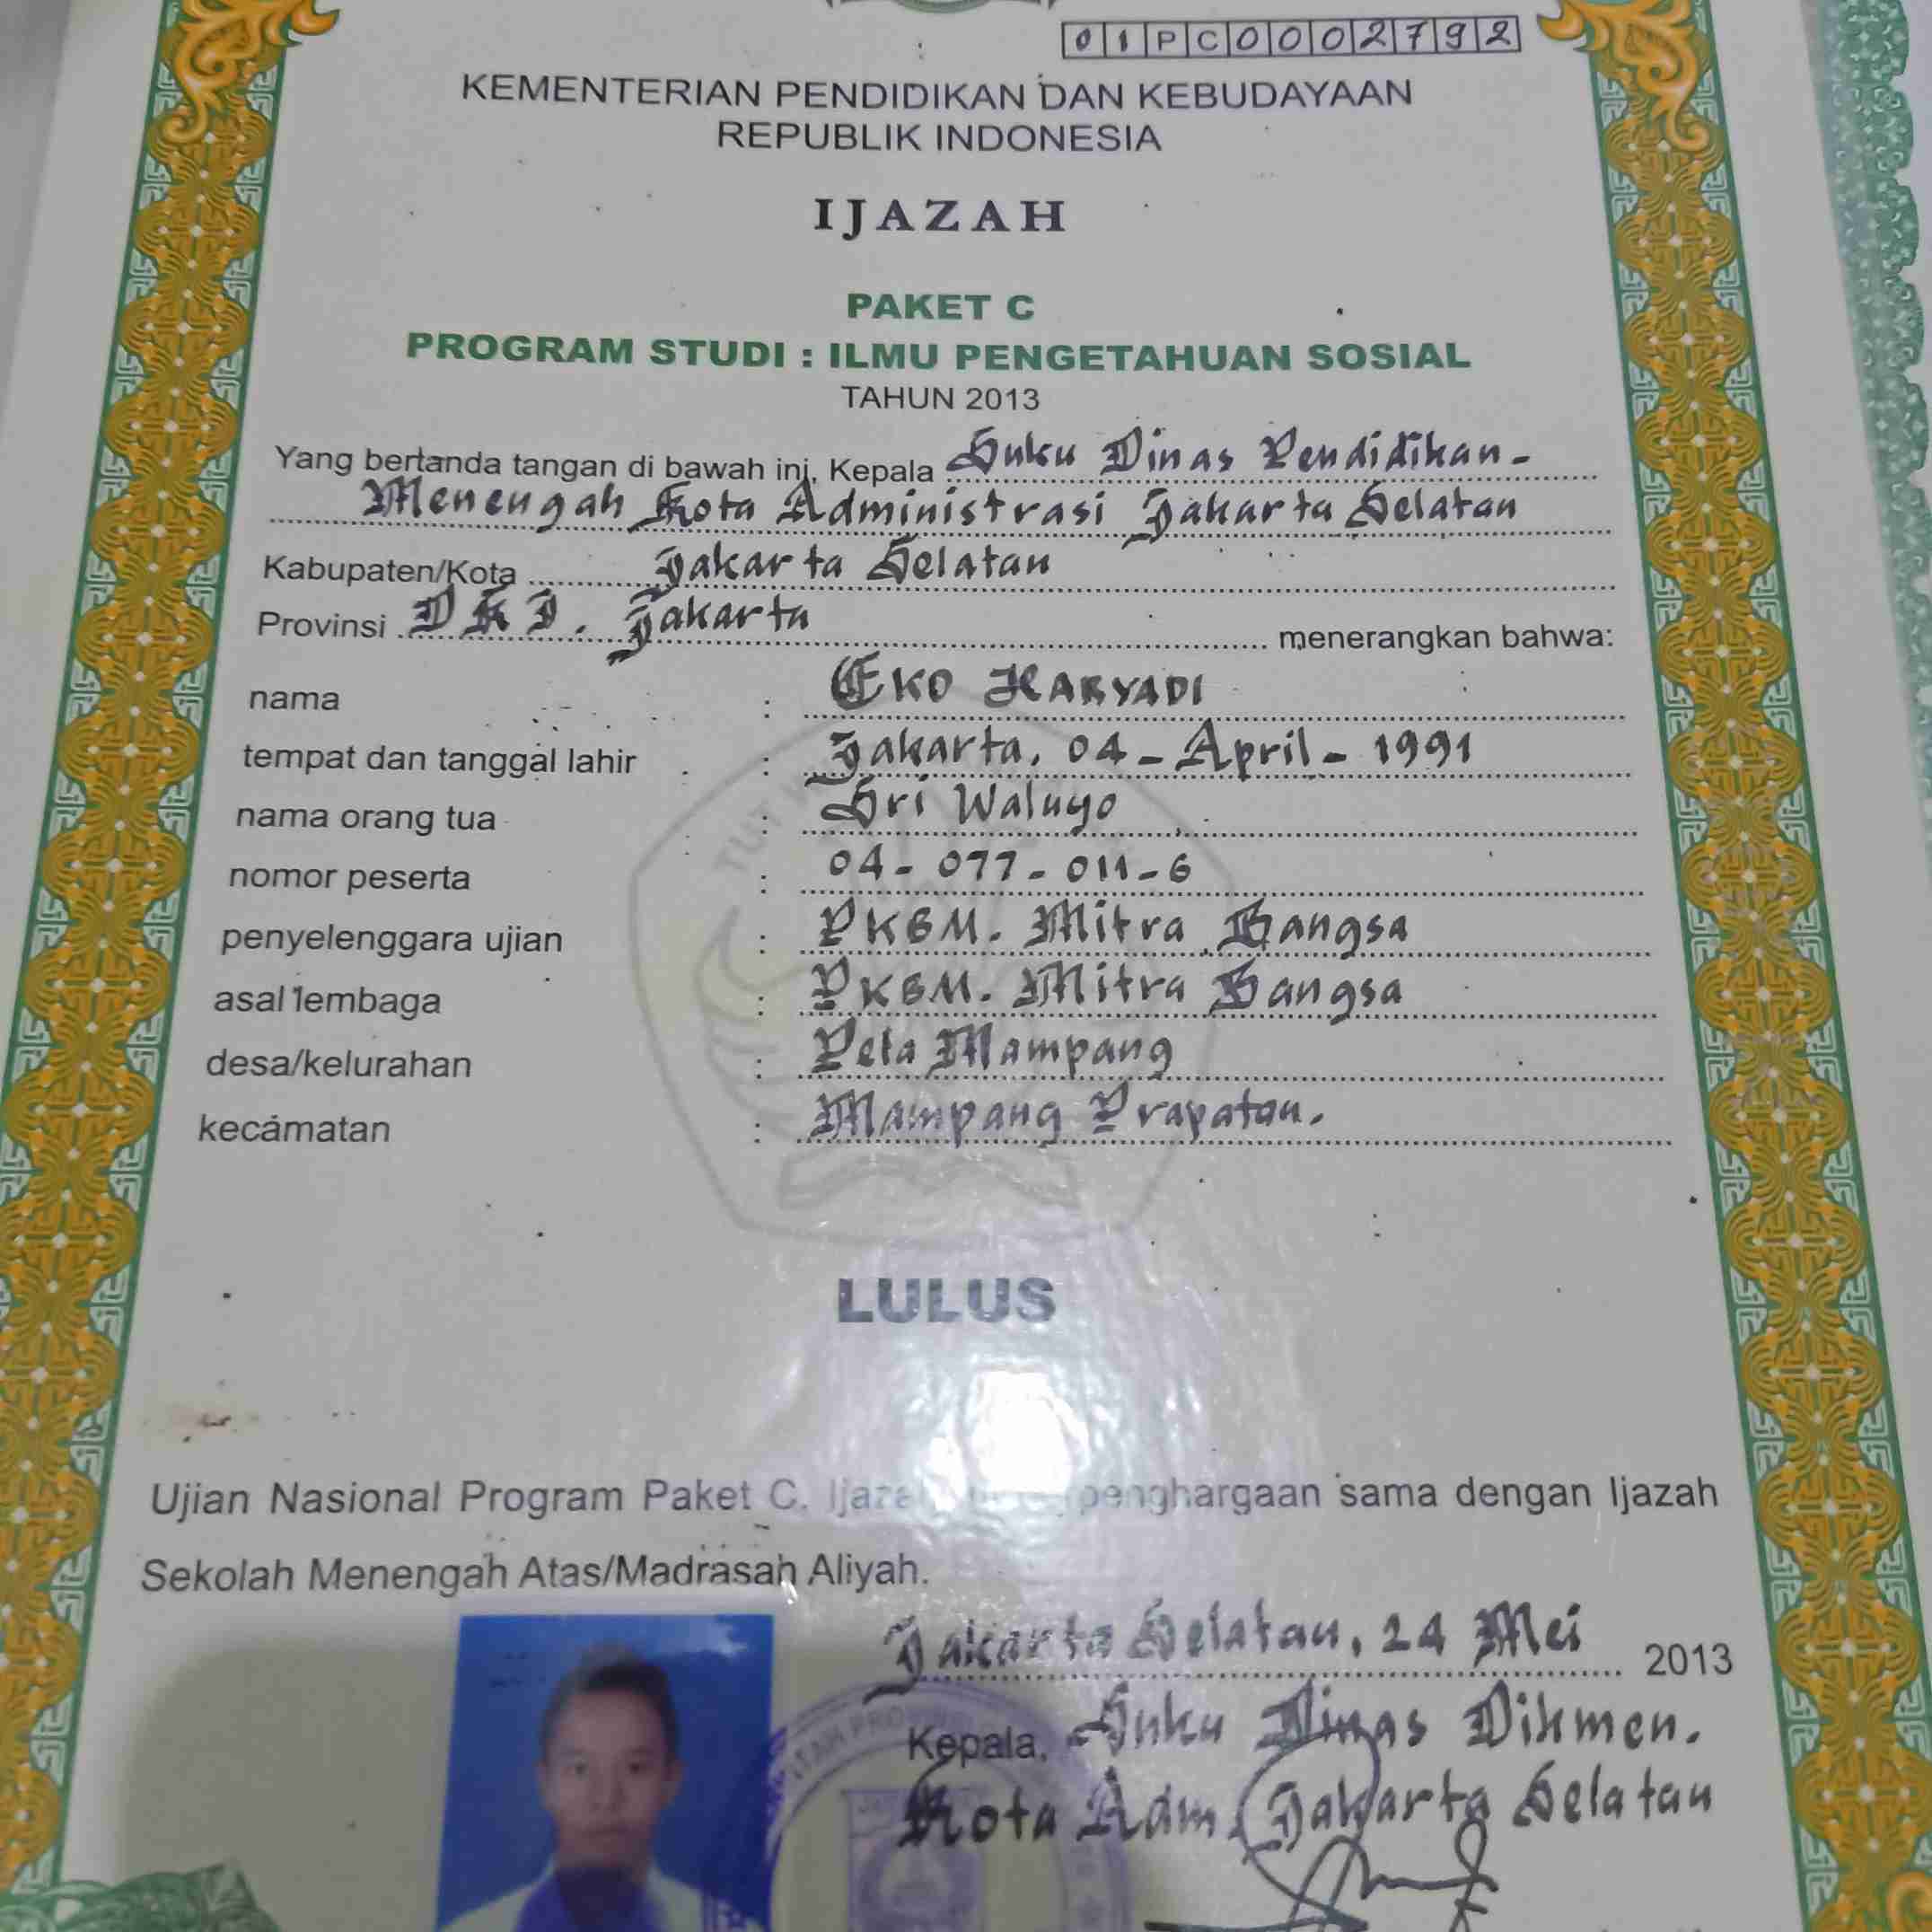 01PC0002792
KEMENTERIAN PENDIDIKAN DAN KEBUDAYAAN
REPUBLIK INDONESIA
IJAZAH
PAKET C
PROGRAM STUDI : ILMU PENGETAHUAN SOSIAL
TAHUN 2013
Yang bertanda tangan di bawah ini, Kepala Suku Dinas Pendidikan-
Menengah Kota Administrasi Jakarta Selatan
Kabupaten/Kota Jakarta Selatan
Provinsi DKI. Jakarta menerangkan bahwa:
nama : EKO HARYADI
tempat dan tanggal lahir : Jakarta, 04 - April - 1991
nama orang tua : Sri Waluyo
nomor peserta : 04 - 077 - 011 - 6
penyelenggara ujian : PKBM. Mitra Bangsa
asal lembaga : PKBM. Mitra Bangsa
desa/kelurahan : Pela Mampang
kecamatan : Mampang Prapatan.
TUT
LULUS
Ujian Nasional Program Paket C. penghargaan sama dengan Ijazah
Sekolah Menengah Atas/Madrasah Aliyah.
Jakarta Selatan, 24 Mei 2013
Kepala, Suku Dinas Dikmen.
Kota Adm. Jakarta Selatan